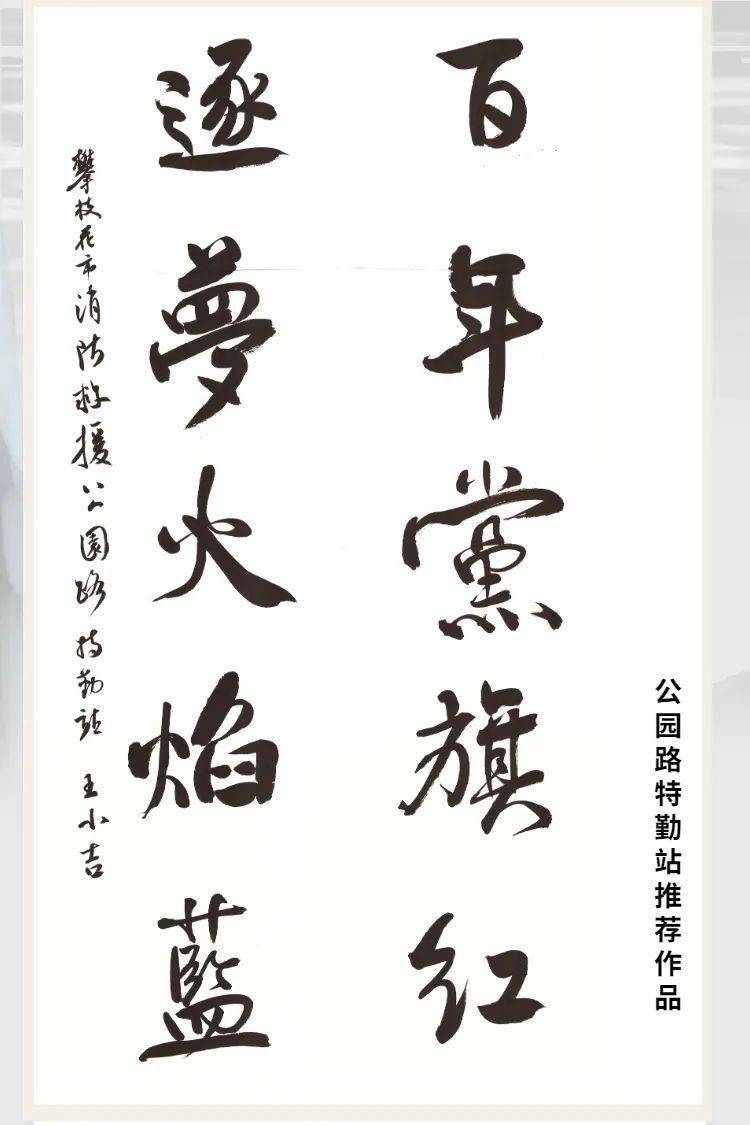 公园路特勤站推荐作品
百年黨旗红
逐夢火焰藍
攀枝花市消防救援公園路特勤站 王小吉